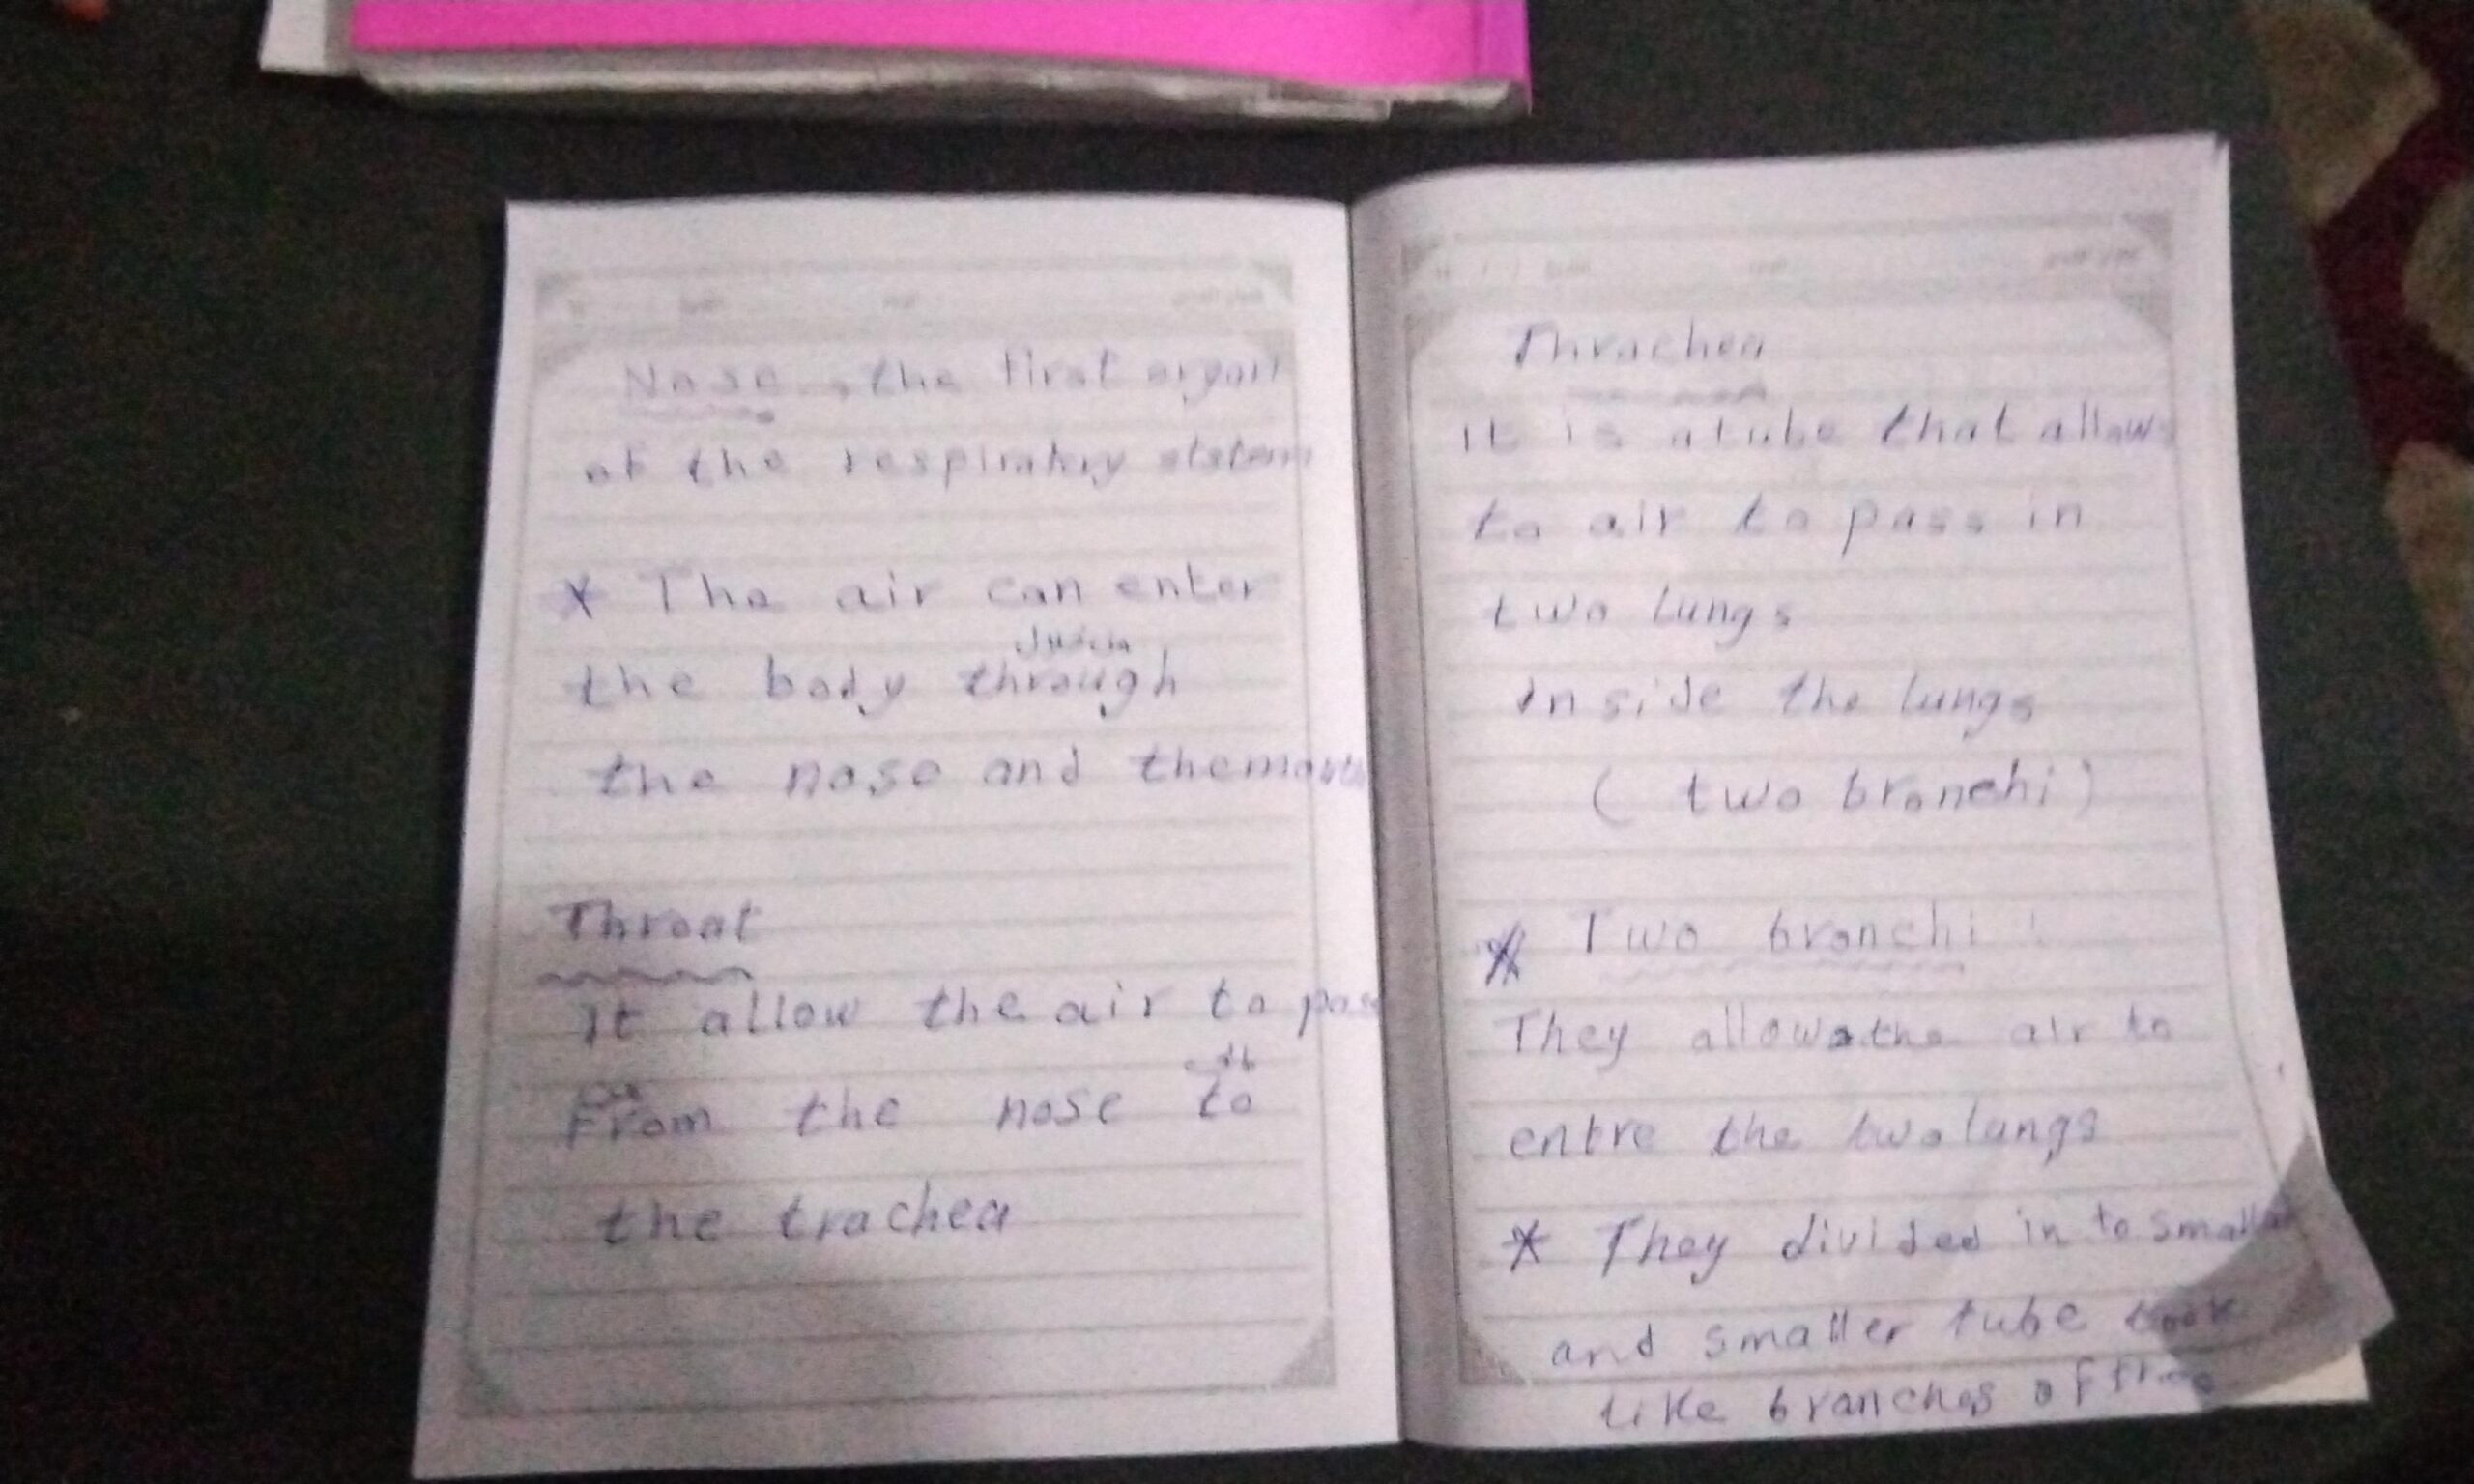 Nose the first organ
of the respiratory
* The air can enter
the body through
the nose and the mouth
Throat
It allow the air to pass
From the nose to
the trachea
Thrachea
It is a tube that allows
to air to pass in
two lungs
inside the lungs
( two bronchi )
* Two bronchi :
They allows the air to
entre the two lungs
* They divided in to smaller
and smaller tube look
like branches of